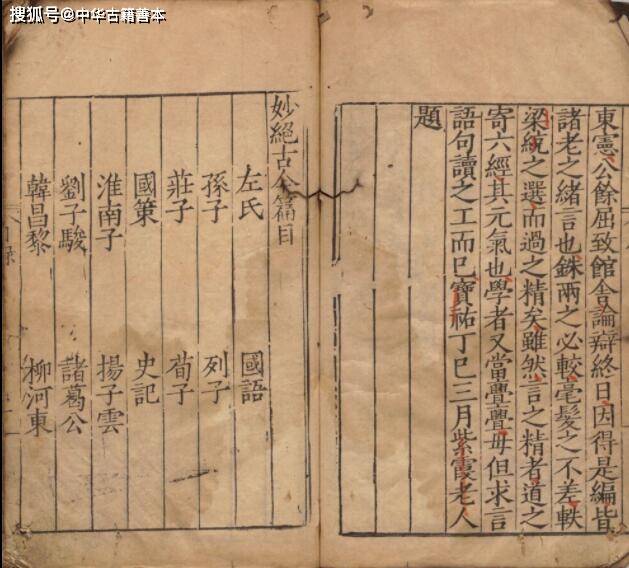 搜狐号@中华古籍善本
東憲公餘屈致館舍論辯終日因得是編皆
諸老之緒言也銖兩之必較毫髮之不差軼
梁統之選而過之精矣雖然言之精者道之
寄六經其元氣也學者又當亹亹毋但求言
語句讀之工而已寶祐丁巳三月紫霞老人
題
妙絕古今篇目
左氏 國語
孫子 列子
莊子 荀子
國策 史記
淮南子 揚子雲
劉子駿 諸葛公
韓昌黎 柳河東
目錄